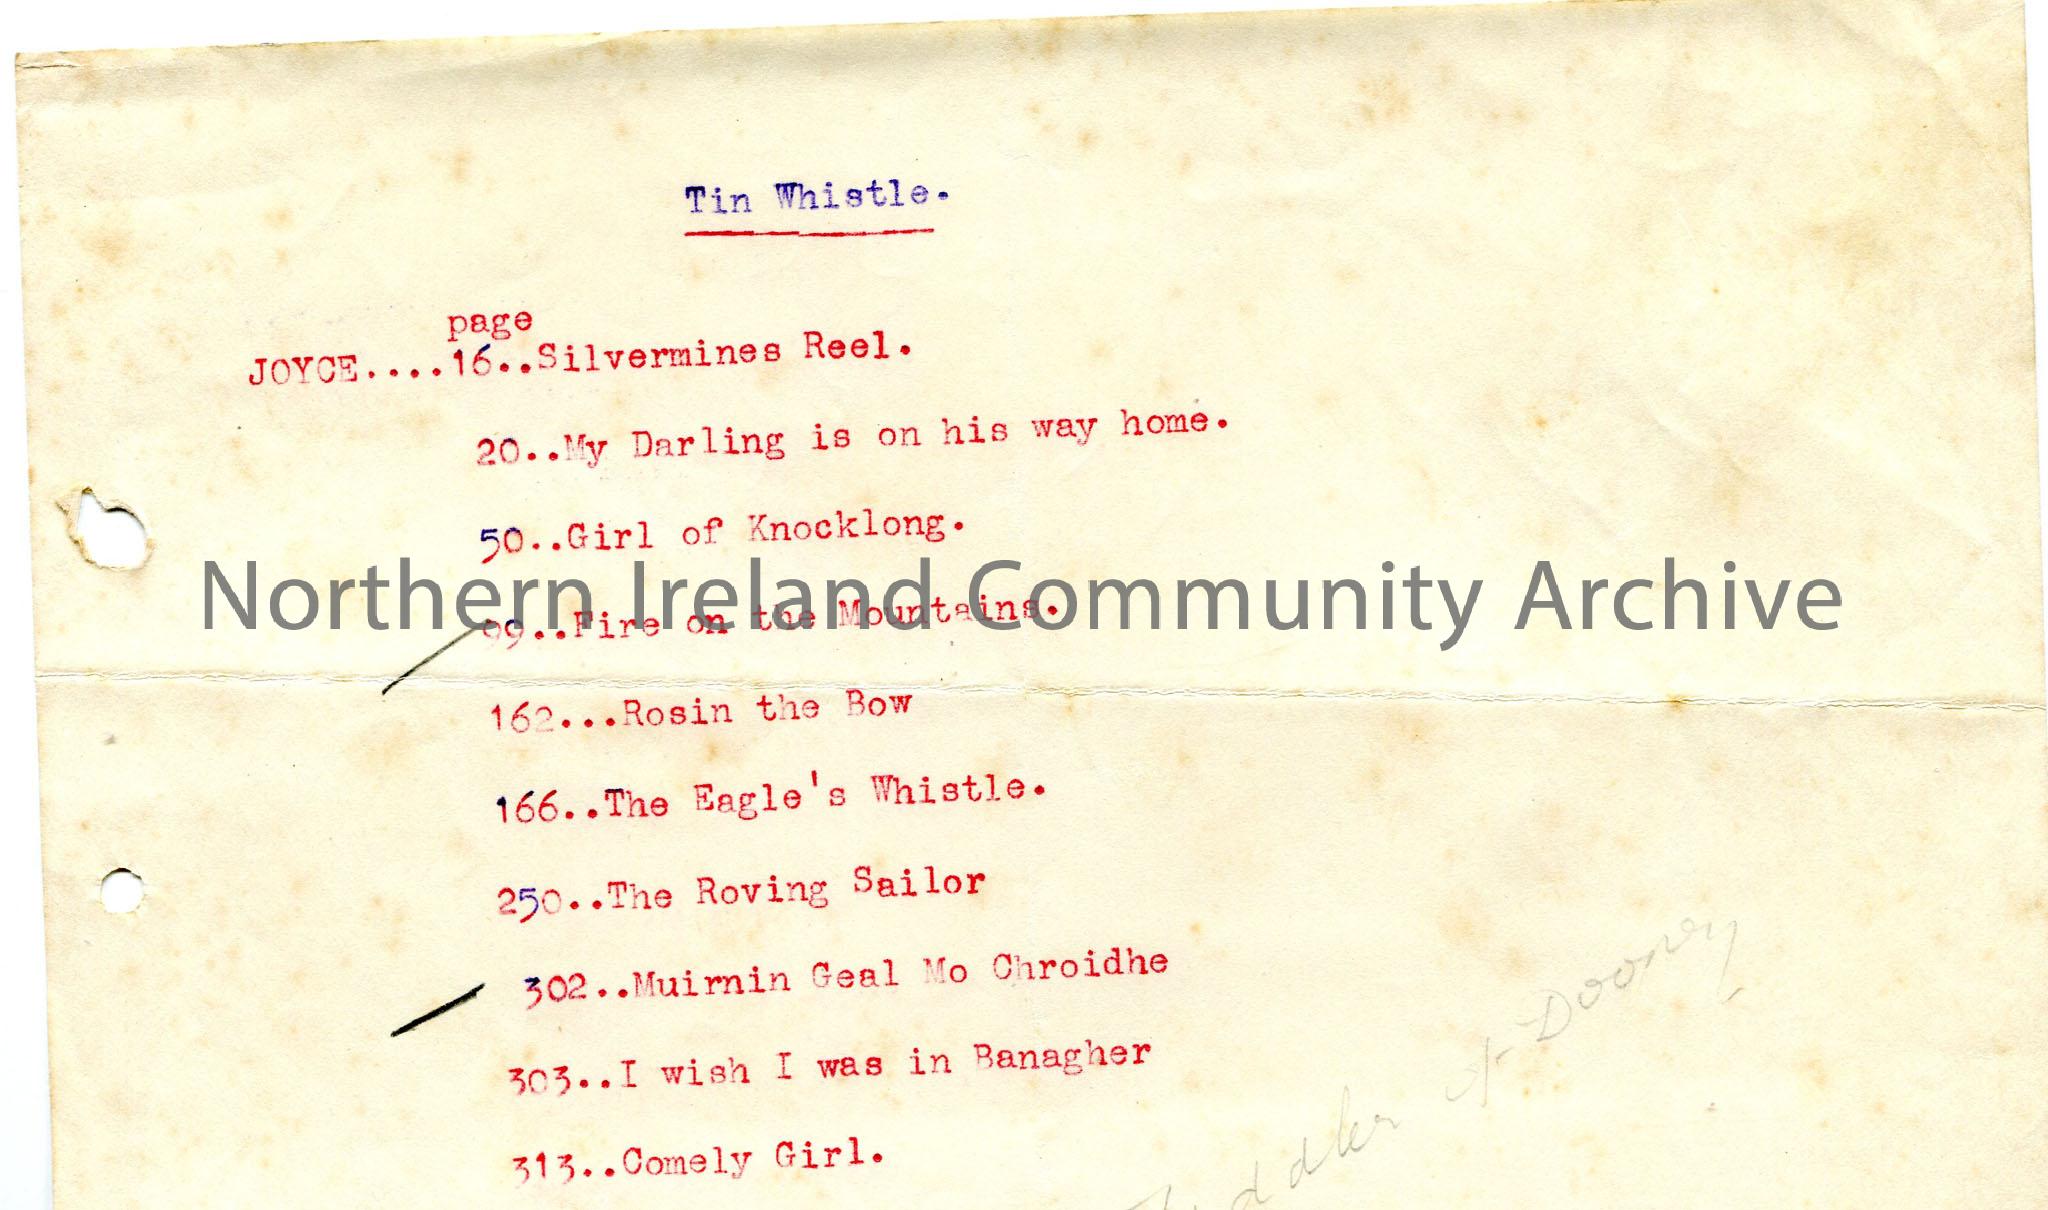 Tin Whistle.
page
JOYCE....16..Silvermines Reel.
20..My Darling is on his way home.
50..Girl of Knocklong.
Northern Ireland Community Archive
99..Fire on the Mountains.
162...Rosin the Bow
166..The Eagle's Whistle.
250..The Roving Sailor
302..Muirnin Geal Mo Chroidhe
303..I wish I was in Banagher
313..Comely Girl.
Fiddler of Dooney